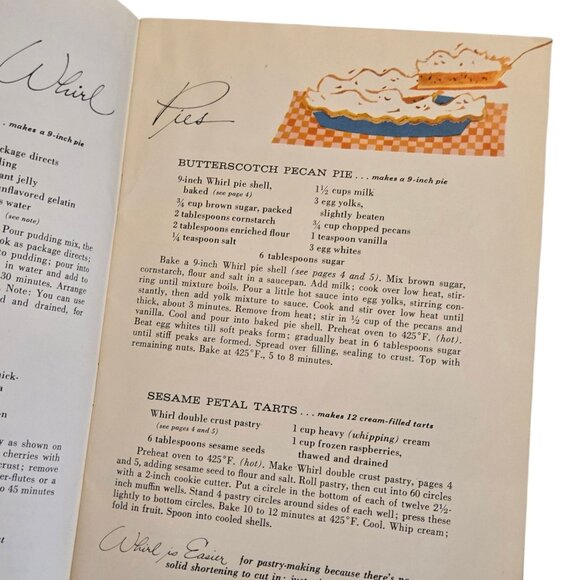 Whirl
. makes a 9-inch pie
ckage directs
ding
ant jelly
unflavored gelatin
s water
(see note)
Pour pudding mix, the
ook as package directs;
to pudding; pour into
in water and add to
30 minutes. Arrange
. Note: You can use
d and drained, for
hick-
ta
on
y as shown on
cherries with
crust; remove
er-flutes or a
to 45 minutes
Pies
BUTTERSCOTCH PECAN PIE . . . makes a 9-inch pie
9-inch Whirl pie shell,
baked (see page 4)
¾ cup brown sugar, packed
2 tablespoons cornstarch
2 tablespoons enriched flour
¼ teaspoon salt
1½ cups milk
3 egg yolks,
slightly beaten
¾ cup chopped pecans
1 teaspoon vanilla
3 egg whites
6 tablespoons sugar
Bake a 9-inch Whirl pie shell (see pages 4 and 5). Mix brown sugar,
cornstarch, flour and salt in a saucepan. Add milk; cook over low heat, stir-
ring until mixture boils. Pour a little hot sauce into egg yolks, stirring con-
stantly, then add yolk mixture to sauce. Cook and stir over low heat until
thick, about 3 minutes. Remove from heat; stir in ½ cup of the pecans and
vanilla. Cool and pour into baked pie shell. Preheat oven to 425°F. (hot).
Beat egg whites till soft peaks form; gradually beat in 6 tablespoons sugar
until stiff peaks are formed. Spread over filling, sealing to crust. Top with
remaining nuts. Bake at 425°F., 5 to 8 minutes.
SESAME PETAL TARTS . . . makes 12 cream-filled tarts
Whirl double crust pastry
(see pages 4 and 5)
6 tablespoons sesame seeds
1 cup heavy (whipping) cream
1 cup frozen raspberries,
thawed and drained
Preheat oven to 425°F. (hot). Make Whirl double crust pastry, pages 4
and 5, adding sesame seed to flour and salt. Roll pastry, then cut into 60 circles
with a 2-inch cookie cutter. Put a circle in bottom of each of twelve 2½-
inch muffin wells. Stand 4 pastry circles around sides of each well; press these
lightly to bottom circles. Bake 10 to 12 minutes at 425°F. Cool. Whip cream;
fold in fruit. Spoon into cooled shells.
Whirl is Easier for pastry-making because there's no
solid shortening to cut in;